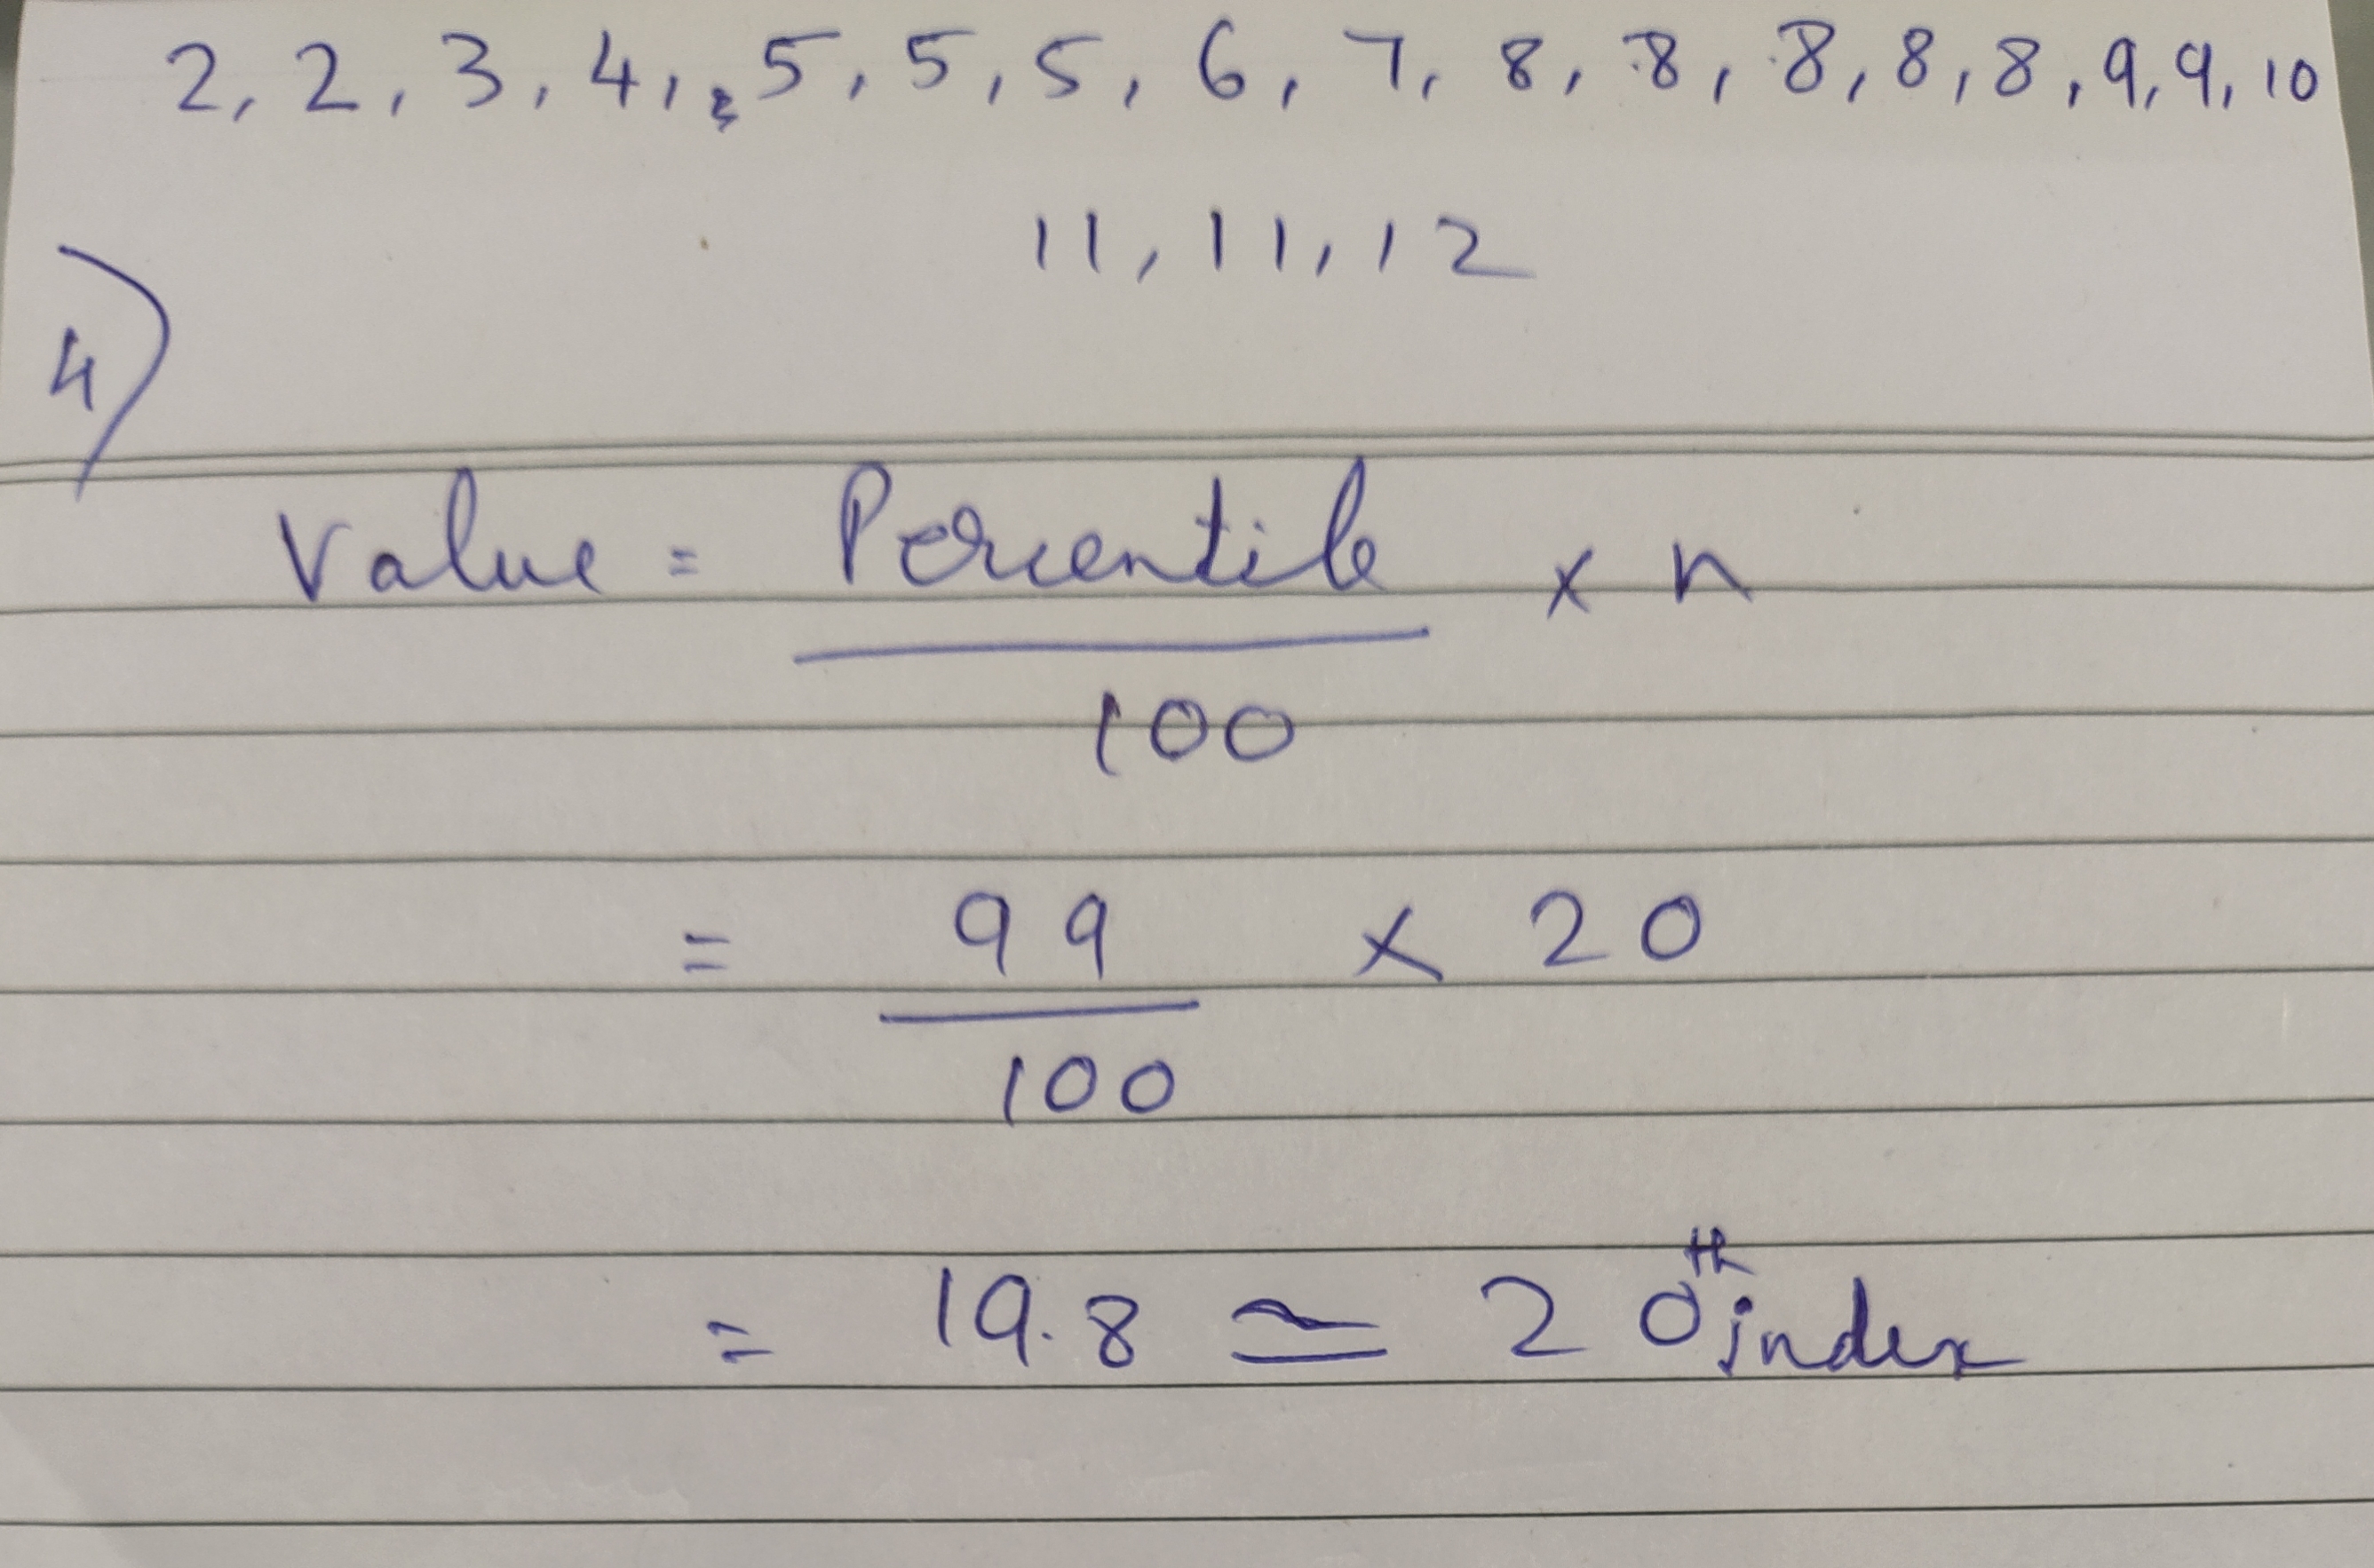 2, 2, 3, 4, 5, 5, 5, 6, 7, 8, 8, 8, 8, 8, 9, 9, 10
11, 11, 12
4)
Value = Percentile × n
100
= 99 × 20
100
= 19.8 ≃ 20th index